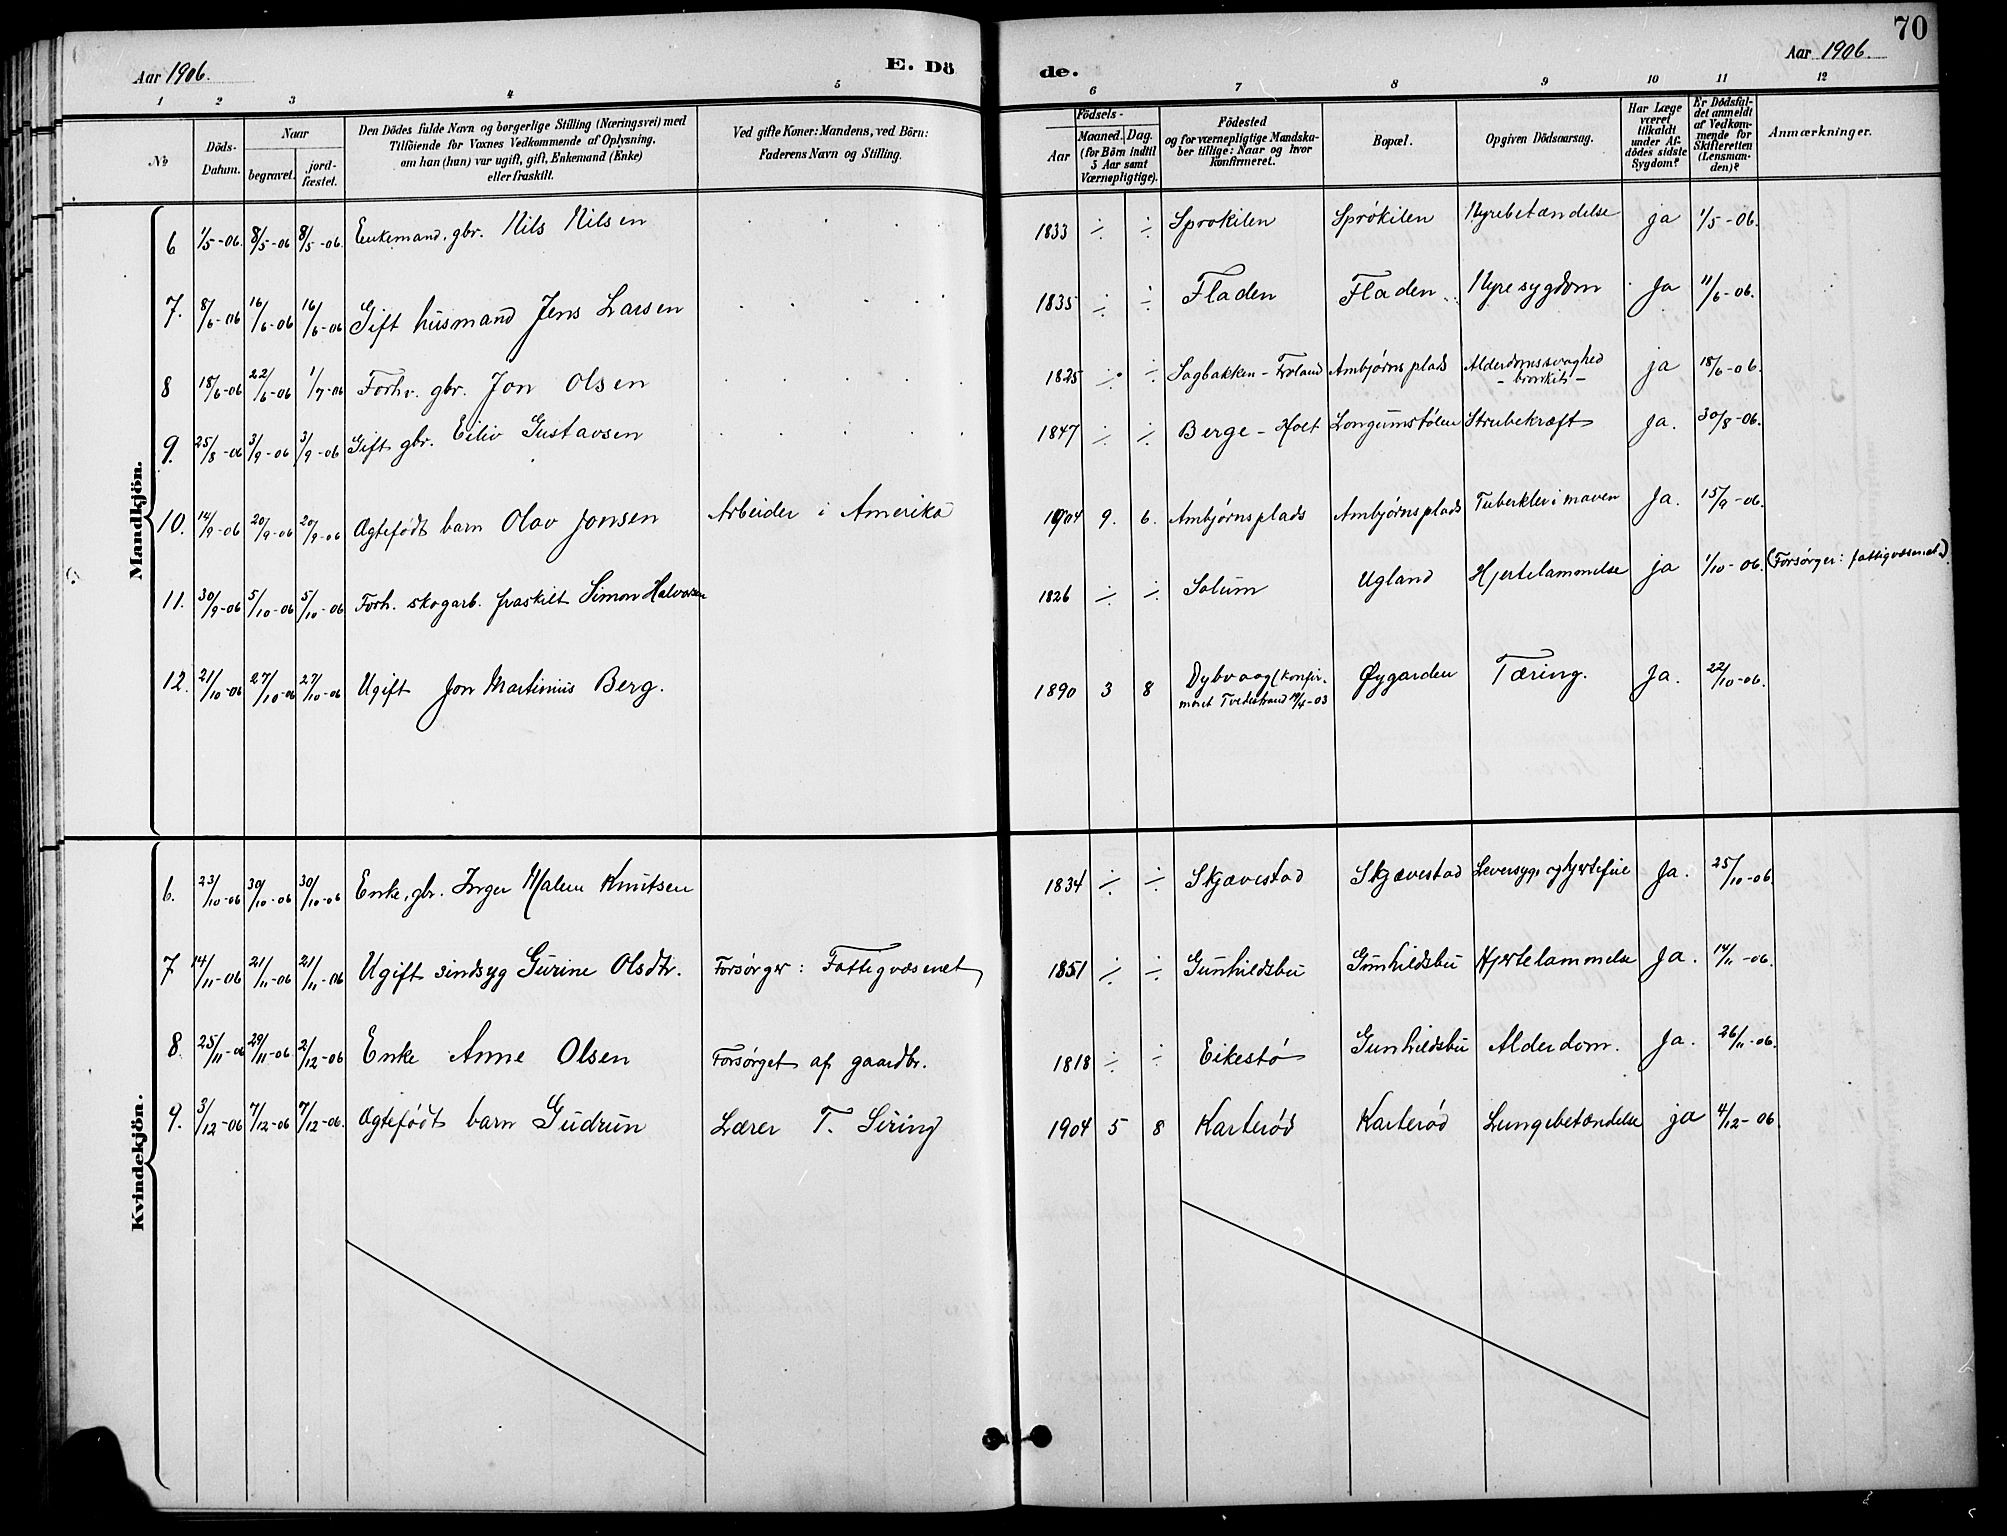 70
Aar 1906. E. Dö de. Aar 1906.
1 2 3 4 5 6 7 8 9 10 11 12
No
Döds-Datum.
Naar
begravet.
jord-fæstet.
Den Dödes fulde Navn og borgerlige Stilling (Næringsvei) med
Tilföiende for Voxnes Vedkommende af Oplysning,
om han (hun) var ugift, gift, Enkemand (Enke)
eller fraskilt.
Ved gifte Koner: Mandens, ved Börn:
Faderens Navn og Stilling.
Födsels-
Aar
Maaned. Dag.
(for Börn indtil
5 Aar samt
Værnepligtige).
Födested
og for værnepligtige Mandska-
ber tillige: Naar og hvor
Konfirmeret.
Bopæl.
Opgiven Dödsaarsag.
Har Læge
været
tilkaldt
under Af-
dödes sidste
Sygdom?
Er Dödsfal-
det anmeldt
af Vedkom-
mende for
Skifteretten
(Lensman-
den)?
Anmærkninger.
Mandkjön.
6 1/5-06. 8/5-06 8/5-06. Enkemand, gbr. Nils Nilsen 1833 ÷ ÷ Sprokilen Sprokilen Nyrebetændelse ja 1/5-06.
7. 8/6-06 16/6-06 16/6-06 Gift husmand Jens Larsen 1835 ÷ ÷ Fladen Fladen Nyresygdom Ja 11/6-06.
8 18/6-06 22/6-06 1/7-06 Forhv. gbr. Jon Olsen 1825 ÷ ÷ Sagbakken - Froland Ambjørnsplads Alderdomssvaghed
- bronkit - ja 18/6-06.
9. 25/8-06 3/9-06 3/9-06 Gift gbr. Eiliv Gustavsen 1847 ÷ ÷ Berge - Holt Longumstølen Strubekræft Ja. 30/8-06.
10. 14/9-06 20/9-06 20/9-06 Ægtefødt barn Olav Jonsen Arbeider i Amerika 1904 9. 6. Ambjørnsplads Ambjørnsplads Tuberkler i maven Ja. 15/9-06.
11. 30/9-06 5/10-06 5/10-06 Forh. skogarb. fraskilt Simon Halvorsen 1826 ÷ ÷ Solum Ugland Hjertelammelse ja 1/10-06. (Forsørger: fattigvæsenet.)
12. 21/10-06 27/10-06 27/10-06 Ugift Jon Martinius Berg. 1890 3 8 Dybvaag (konfir-
meret Tvedestrand /4-03 Øygarden Tæring. Ja. 22/10-06.
Kvindekjön.
6. 23/10-06 30/10-06 30/10-06 Enke, gbr. Inger Malene Knutsen 1834 ÷ ÷ Skjævestad Skjævestad Leversyge og hjertefeil Ja. 25/10-06.
7 14/11-06 21/11-06 21/11-06 Ugift sindsyg Gurine Olsdtr. Forsørger: Fattigvæsenet 1851 ÷ ÷ Gunhildsbu Gunhildsbu Hjertelammelse Ja. 14/11-06.
8. 25/11-06 29/11-06. 2/12-06 Enke Anne Olsen Forsørget af gaardbr. 1818 ÷ ÷ Eikestø Gunhildsbu Alderdom. Ja. 26/11-06.
9. 3/12-06 7/12-06 7/12-06. Ægtefødt barn Gudrun Lærer T. Siring 1904 5 8 Karterød Karterød Lungebetændelse ja 4/12-06.